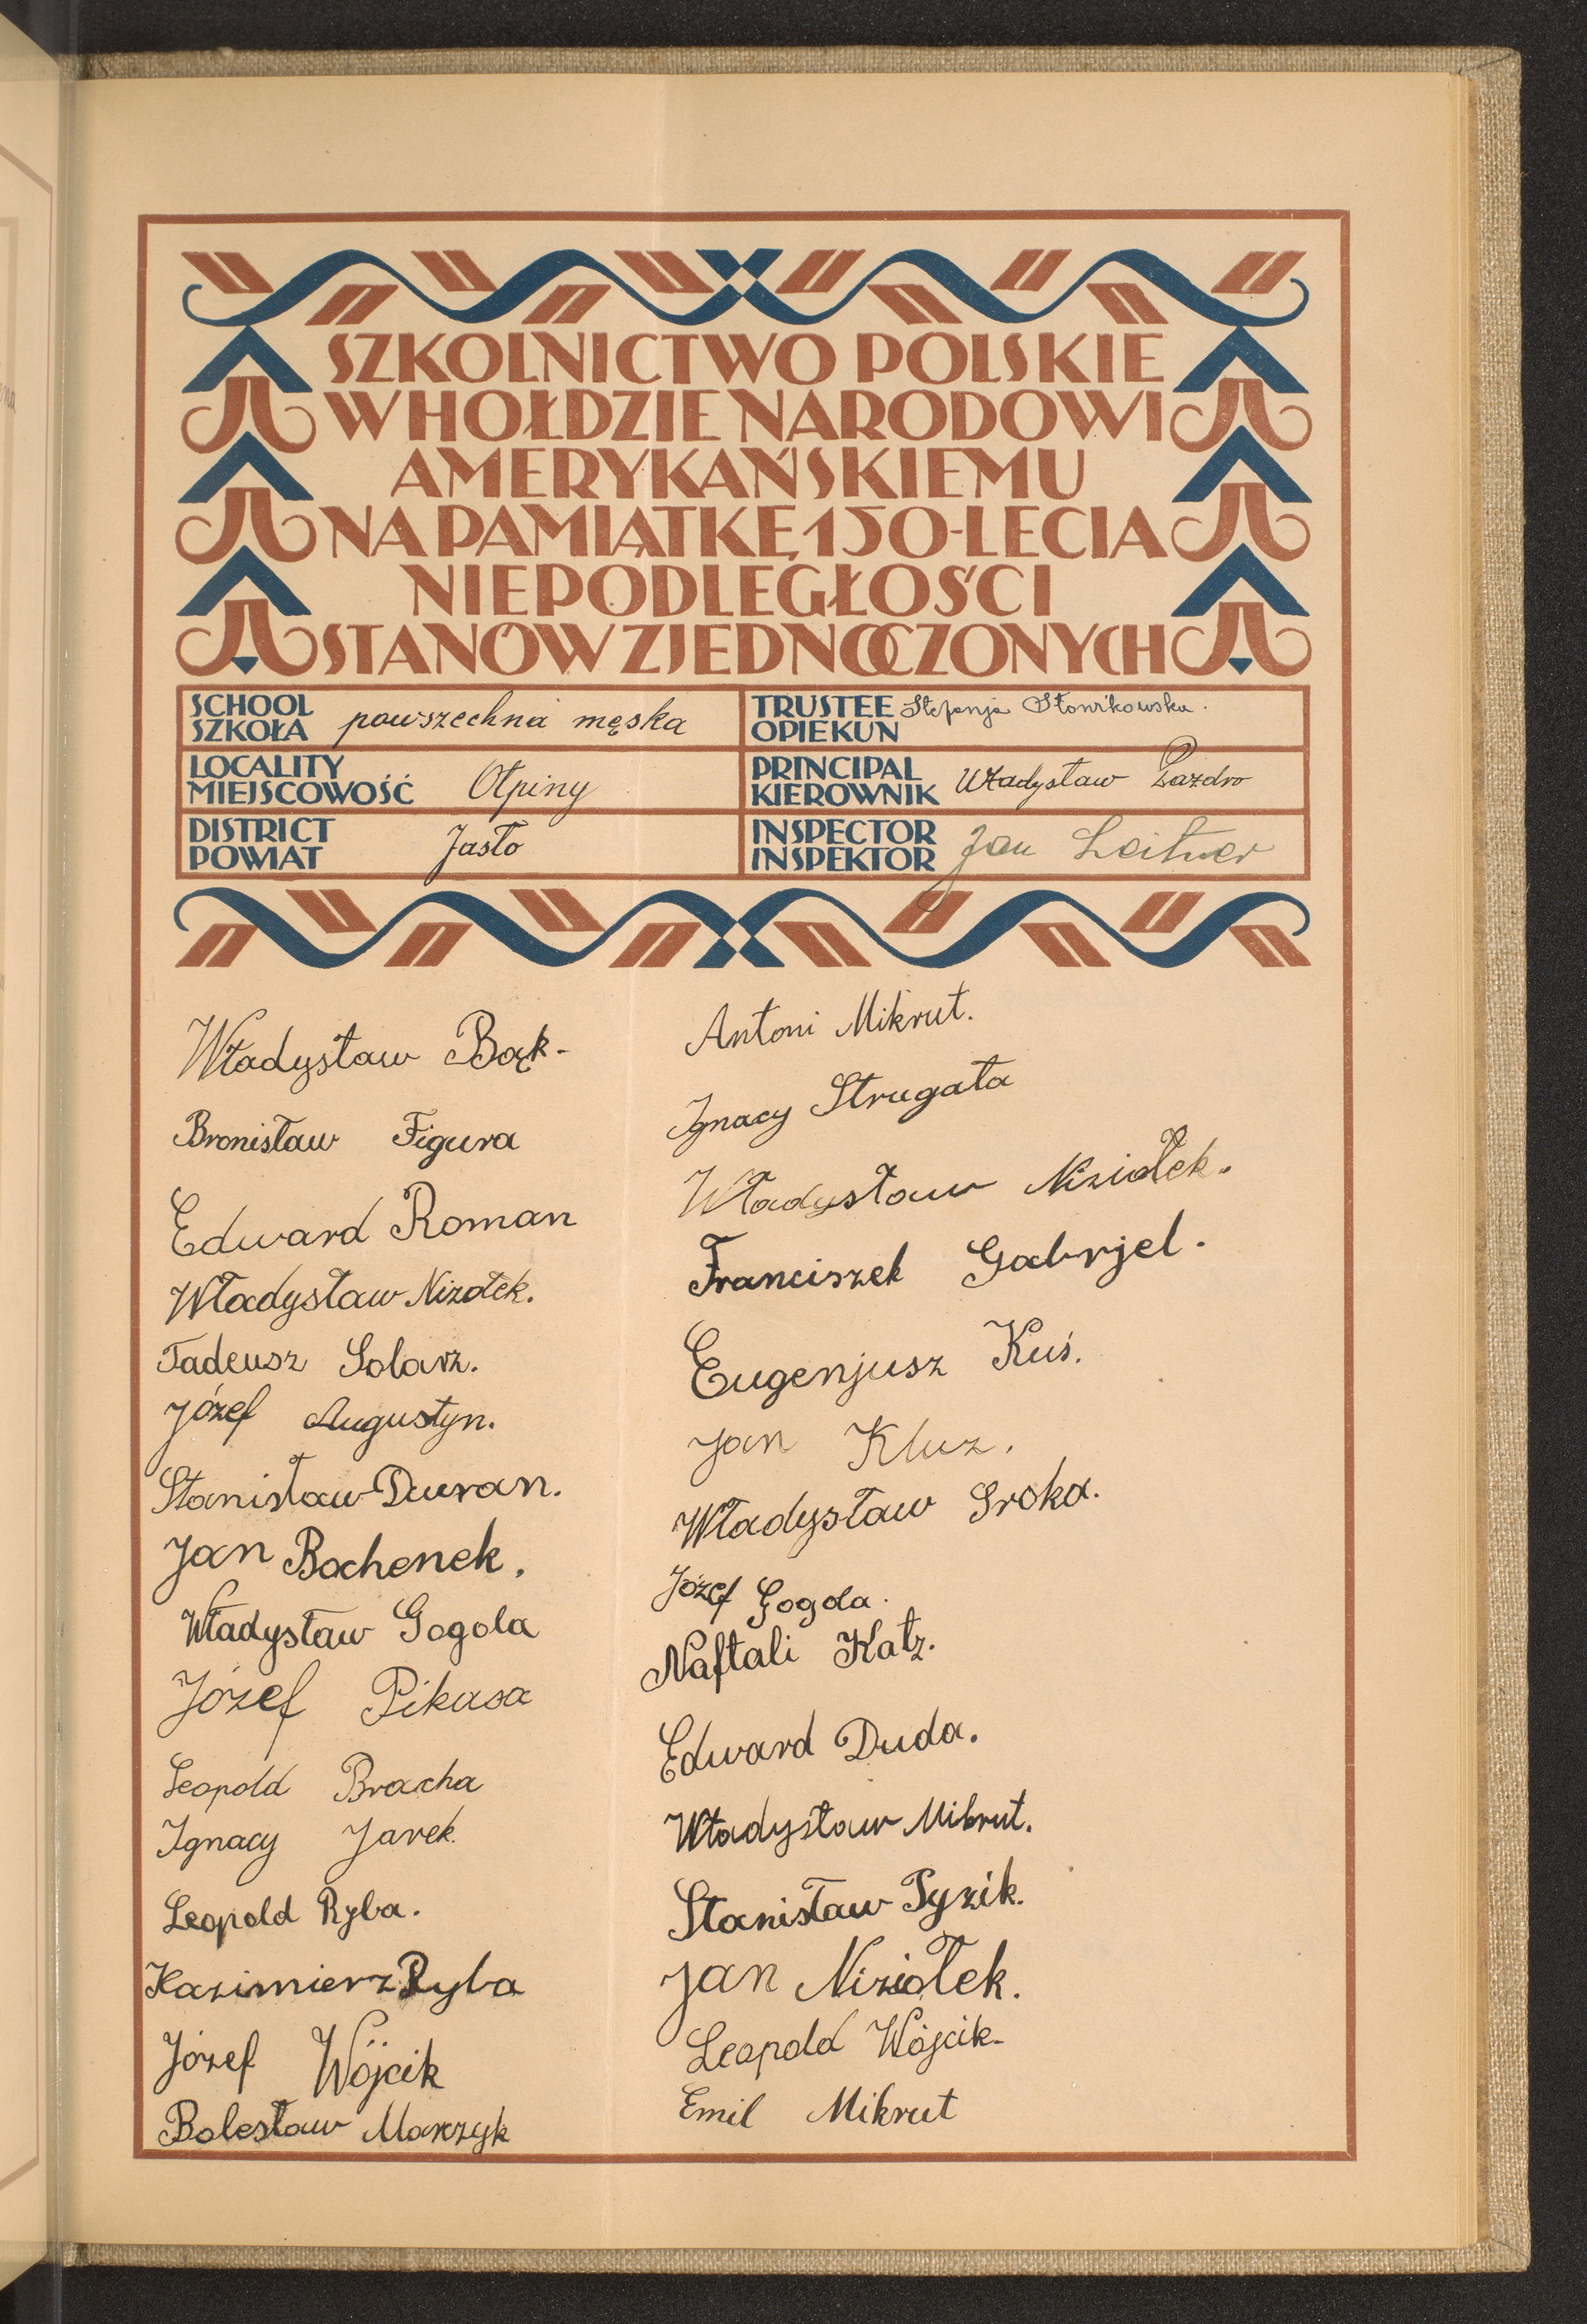 SZKOLNICTWO POLSKIE
W HOŁDZIE NARODOWI
AMERYKAŃSKIEMU
NA PAMIĄTKĘ 150-LECIA
NIEPODLEGŁOŚCI
STANÓW ZJEDNOCZONYCH
SCHOOL
SZKOŁA powszechna męska
TRUSTEE Stefanja Słonikowska.
OPIEKUN
LOCALITY
MIEJSCOWOŚĆ Ołpiny
PRINCIPAL
KIEROWNIK Władysław Pazdro
DISTRICT
POWIAT Jasło
INSPECTOR
INSPEKTOR Jan Leitner
Władysław Bąk-
Bronisław Figura
Edward Roman
Władysław Niziołek.
Tadeusz Solarz.
Józef Augustyn.
Stanisław Duran.
Jan Bochenek.
Władysław Gogola
Józef Pikasa
Leopold Bracha
Ignacy Jarek.
Leopold Ryba.
Kazimierz Ryba
Józef Wójcik
Bolesław Marzyk
Antoni Mikrut.
Ignacy Strugała
Władysław Niziołek.
Franciszek Gabrjel.
Eugenjusz Kuś.
Jan Kluz.
Władysław Sroka.
Józef Gogola.
Naftali Katz.
Edward Duda.
Władysław Mikrut.
Stanisław Pyzik.
Jan Niziołek.
Leopold Wójcik-
Emil Mikrut